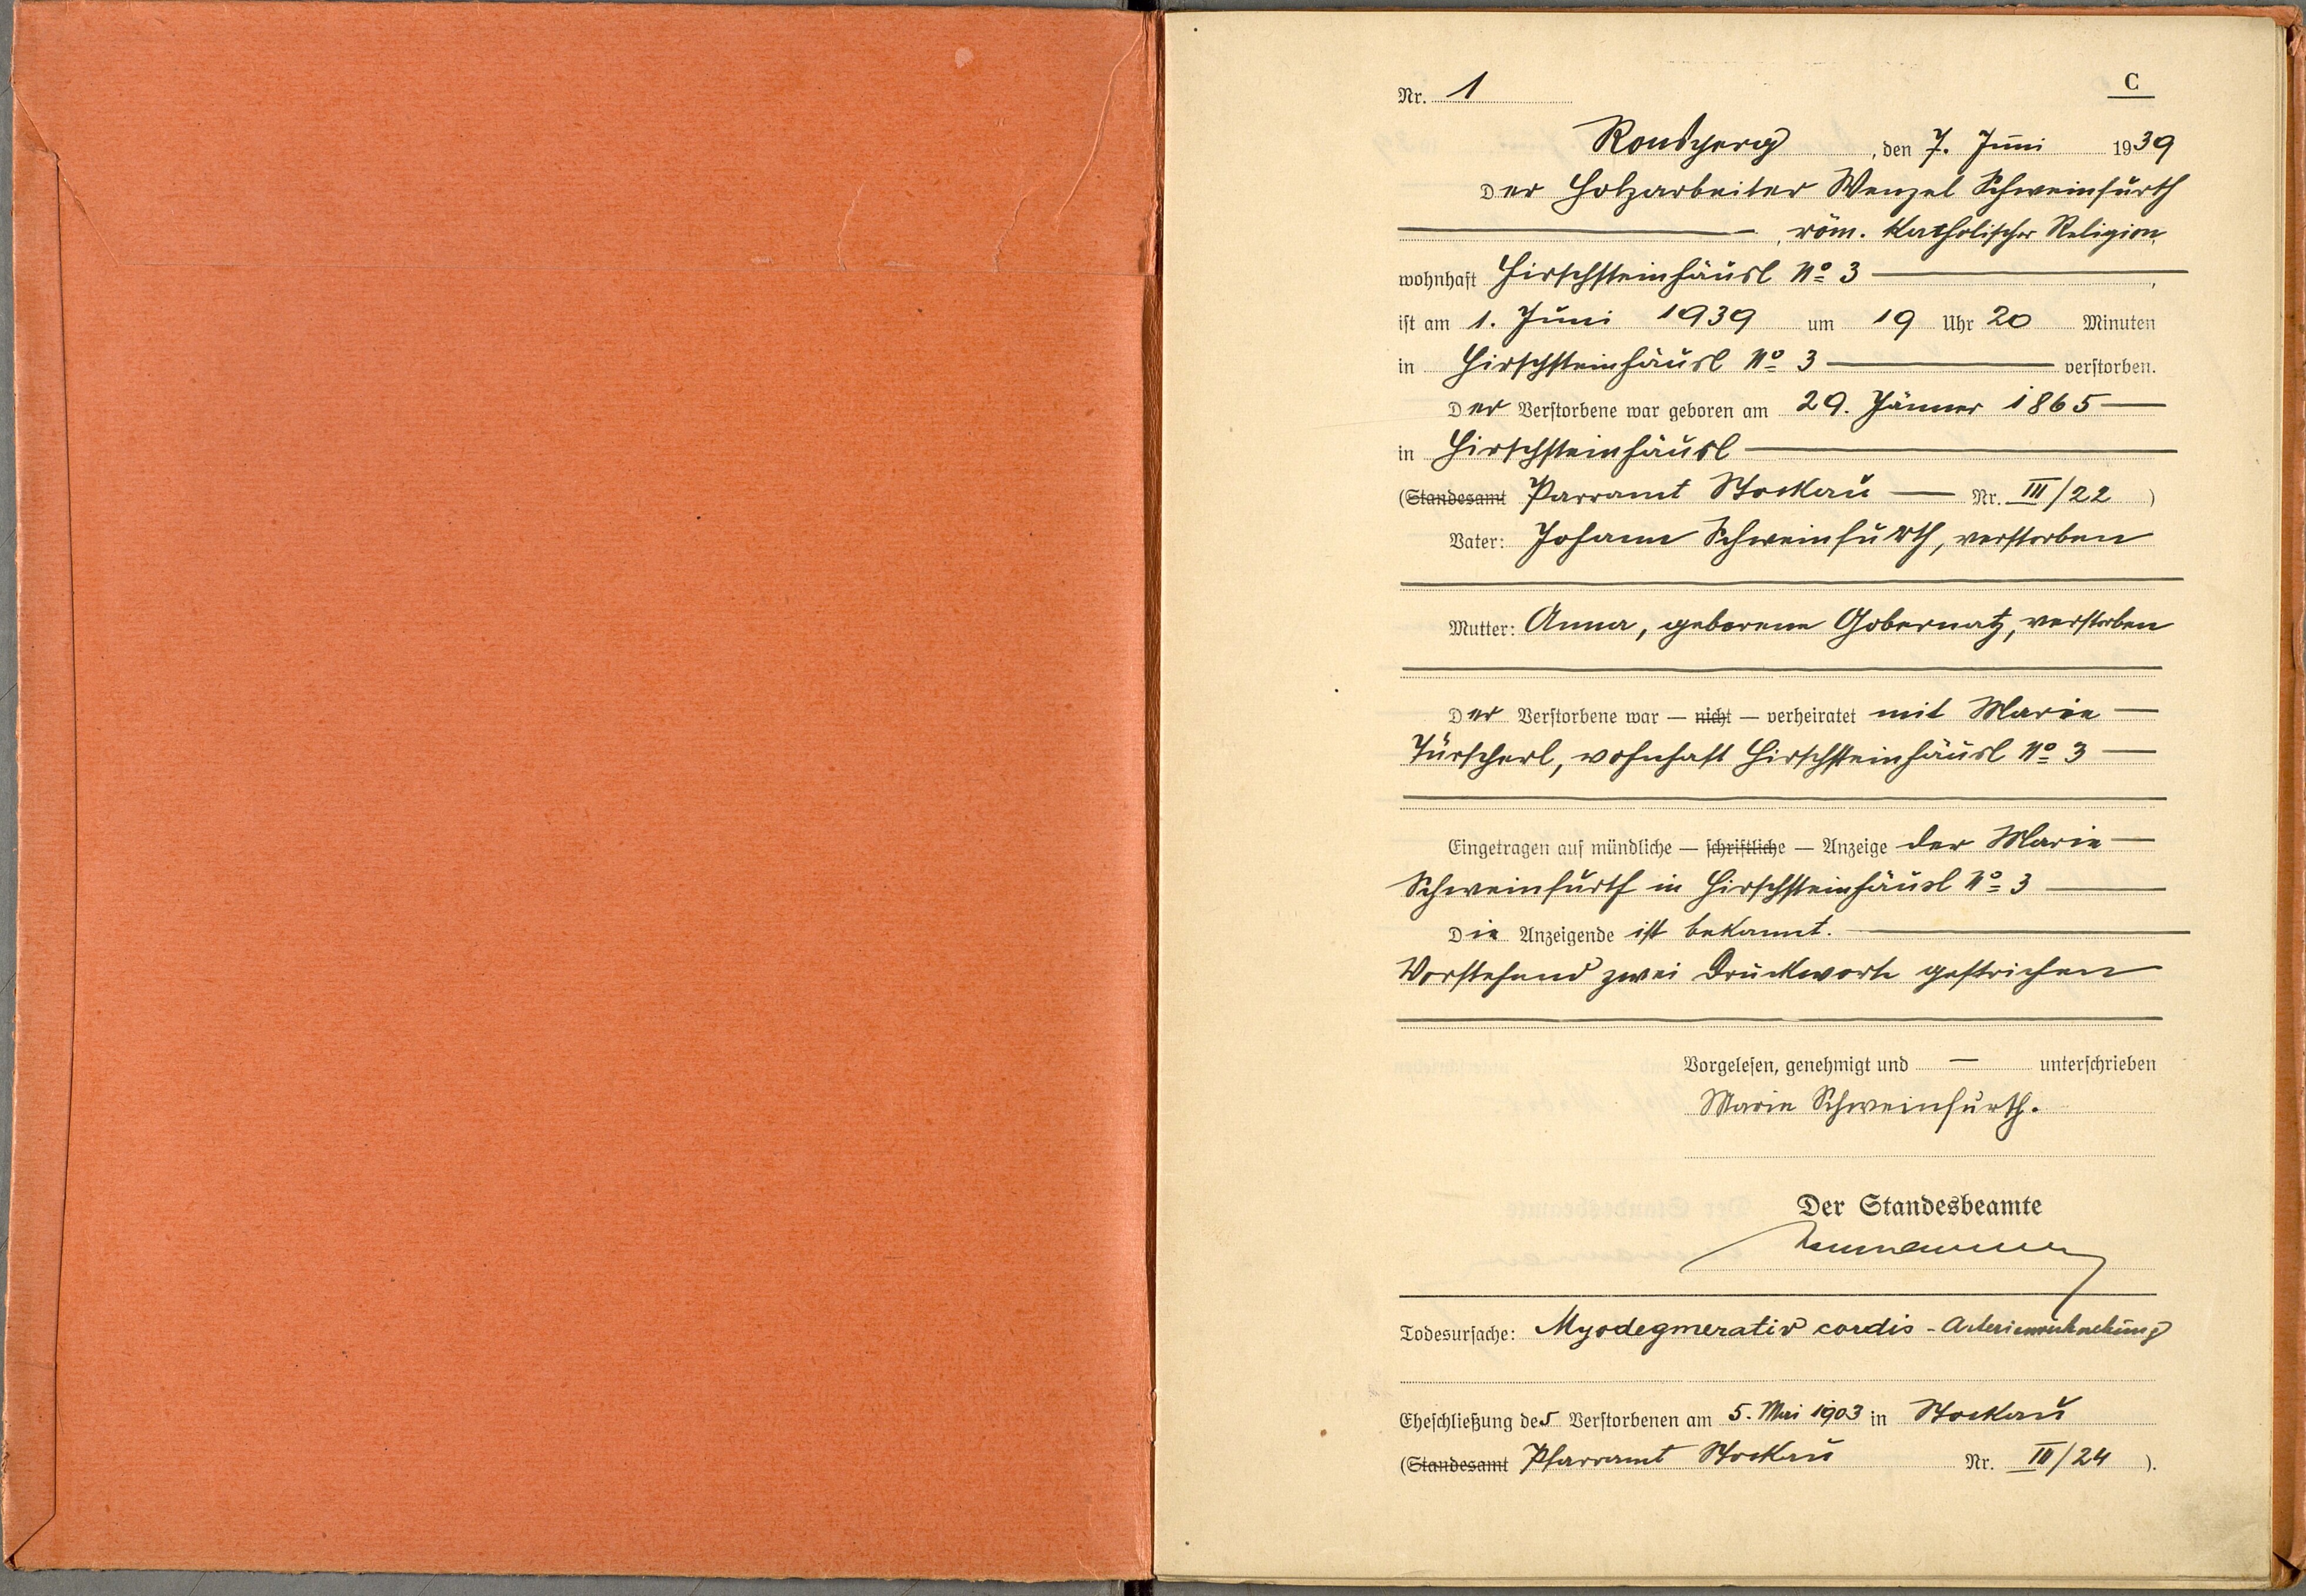 Nr. 1
C
Ronsperg, den 7. Juni 1939
Der Holzarbeiter Wenzel Schweinfurth
, röm. katholischer Religion,
wohnhaft Hirschsteinhäusl No 3 ,
ist am 1. Juni 1939 um 19 Uhr 20 Minuten
in Hirschsteinhäusl No 3 verstorben.
Der Verstorbene war geboren am 29. Jänner 1865
in Hirschsteinhäusl
(Standesamt Parramt Stockau Nr. III/22 )
Vater: Johann Schweinfurth, verstorben
Mutter: Anna, geborene Gobernatz, verstorben
Der Verstorbene war — nicht — verheiratet mit Marie
Türscherl, wohnhaft Hirschsteinhäusl No 3
Eingetragen auf mündliche — schriftliche — Anzeige der Marie
Schweinfurth in Hirschsteinhäusl No 3
Die Anzeigende ist bekannt.
Vorstehend zwei Druckworte gestrichen
Vorgelesen, genehmigt und — unterschrieben
Marie Schweinfurth.
Der Standesbeamte
Todesursache: Myodegneratio cordis - Arterienverkalkung
Eheschließung des Verstorbenen am 5. Mai 1903 in Stockau
(Standesamt Pfarramt Stockau Nr. III/24 ).